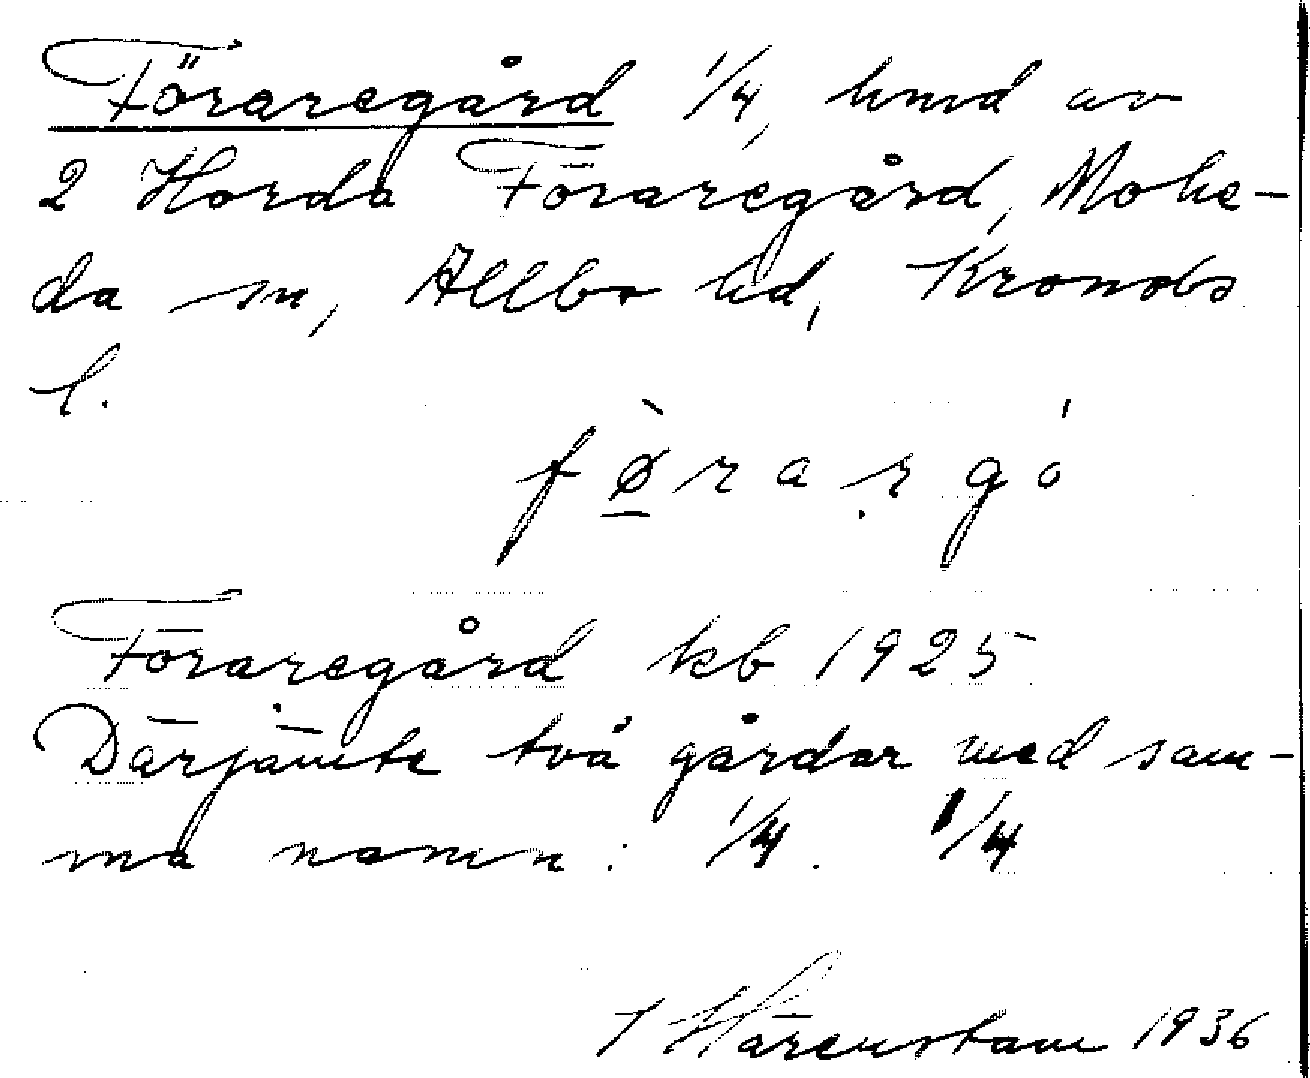 Föraregård 1/4, hmd av
2 Horda Föraregård, Mohe-
da sn, Allbo hd, Kronobs
l.
fø̱̀rarg̣ó
Föraregård kb 1925
Därjämte två gårdar med sam-
ma namn: 1/4. 1/4
Härenstam 1936